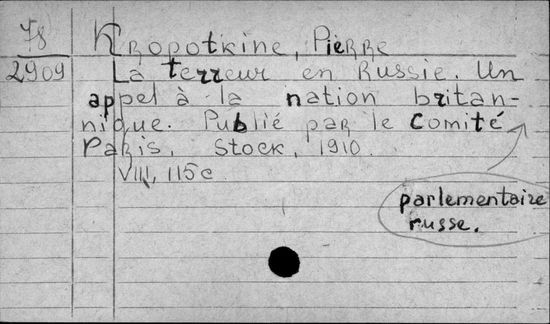 78
2909
Kropotkine, Pierre
La terreur en Russie. Un
appel à la nation britan-
nique. Publié par le Comité
Paris, Stock, 1910.
VIII, 115 c
parlementaire
russe.